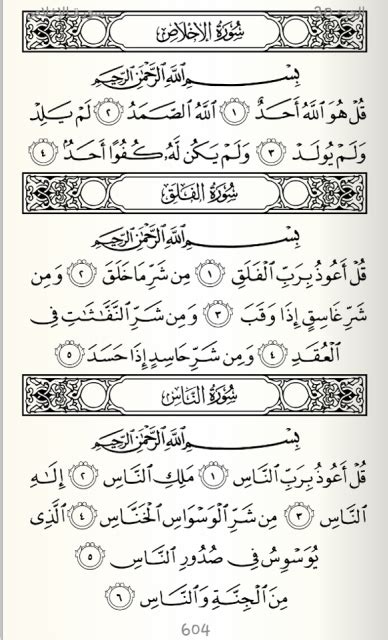 سُورَةُ الإِخْلَاصِ
بِسْمِ ٱللَّهِ ٱلرَّحْمَٰنِ ٱلرَّحِيمِ
قُلْ هُوَ ٱللَّهُ أَحَدٌ ١ ٱللَّهُ ٱلصَّمَدُ ٢ لَمْ يَلِدْ
وَلَمْ يُولَدْ ٣ وَلَمْ يَكُن لَّهُۥ كُفُوًا أَحَدٌۢ ٤
سُورَةُ الفَلَقِ
بِسْمِ ٱللَّهِ ٱلرَّحْمَٰنِ ٱلرَّحِيمِ
قُلْ أَعُوذُ بِرَبِّ ٱلْفَلَقِ ١ مِن شَرِّ مَا خَلَقَ ٢ وَمِن
شَرِّ غَاسِقٍ إِذَا وَقَبَ ٣ وَمِن شَرِّ ٱلنَّفَّٰثَٰتِ فِى
ٱلْعُقَدِ ٤ وَمِن شَرِّ حَاسِدٍ إِذَا حَسَدَ ٥
سُورَةُ النَّاسِ
بِسْمِ ٱللَّهِ ٱلرَّحْمَٰنِ ٱلرَّحِيمِ
قُلْ أَعُوذُ بِرَبِّ ٱلنَّاسِ ١ مَلِكِ ٱلنَّاسِ ٢ إِلَٰهِ
ٱلنَّاسِ ٣ مِن شَرِّ ٱلْوَسْوَاسِ ٱلْخَنَّاسِ ٤ ٱلَّذِى
يُوَسْوِسُ فِى صُدُورِ ٱلنَّاسِ ٥
مِنَ ٱلْجِنَّةِ وَٱلنَّاسِ ٦
604